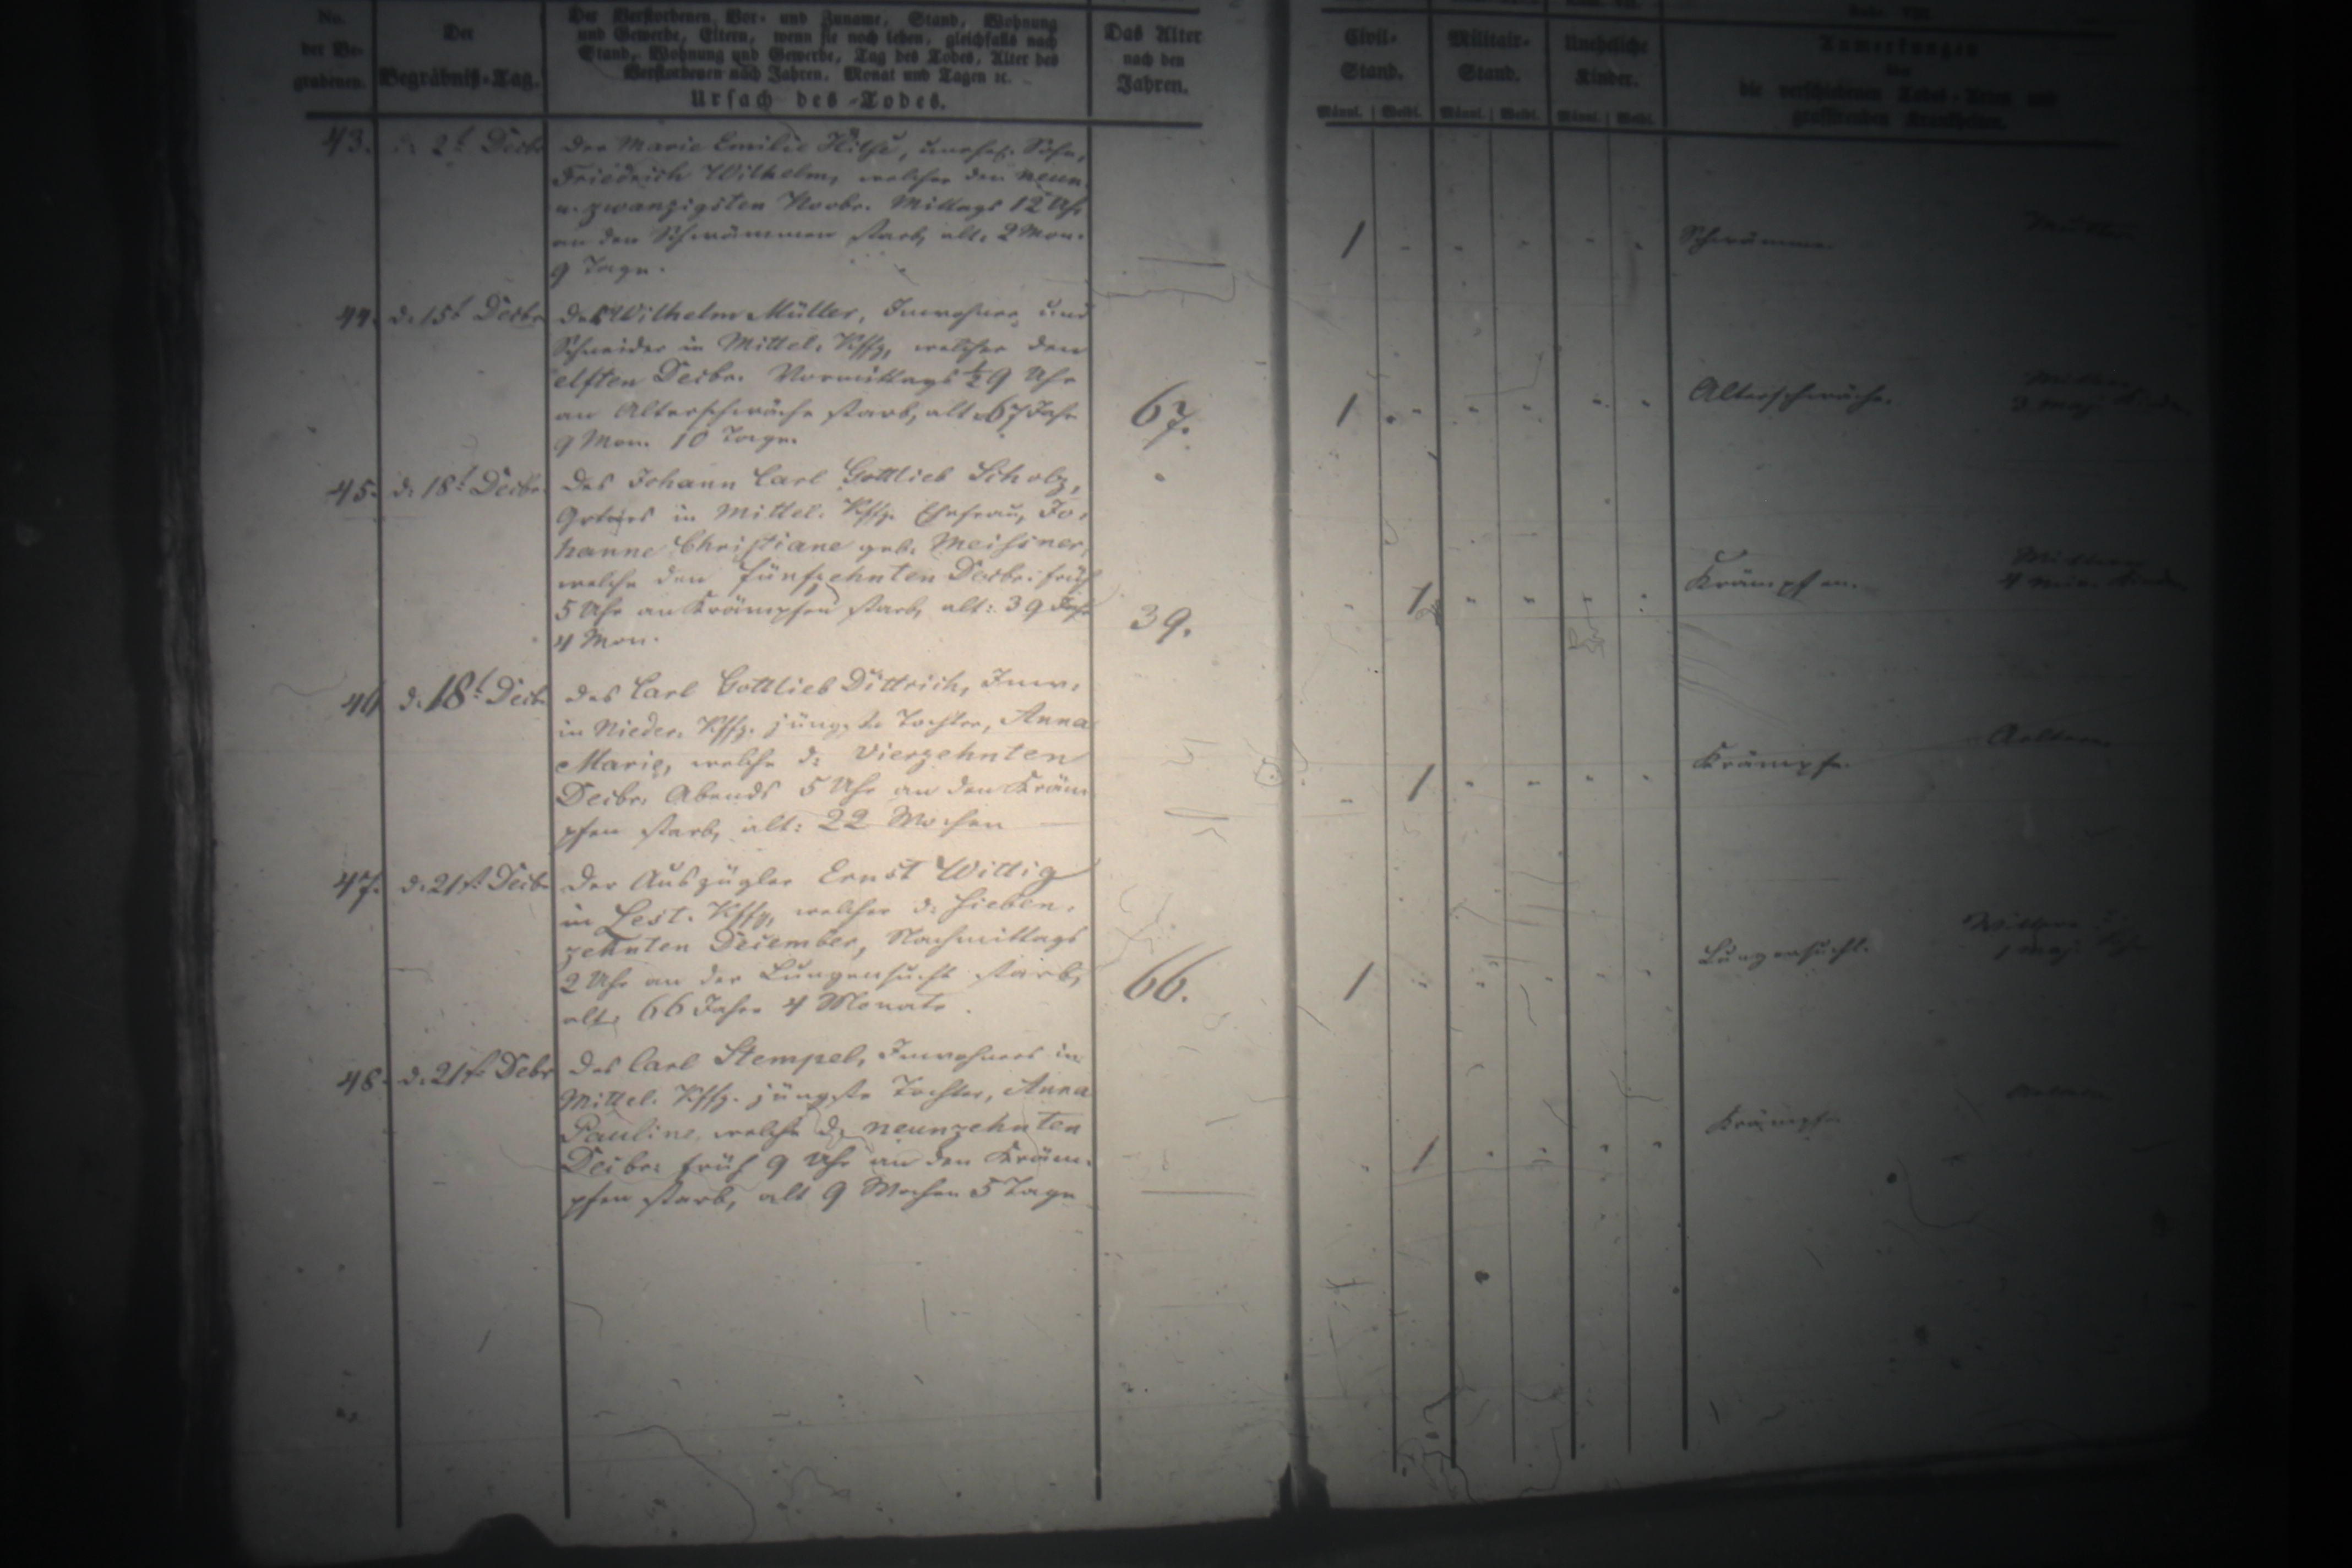 No.
der Be-
grabenen.
Der
Begräbniß-Tag.
Der Verstorbenen Vor- und Zuname, Stand, Wohnung
und Gewerbe, Eltern, wenn sie noch leben, gleichfalls nach
Stand, Wohnung und Gewerbe, Tag des Todes, Alter des
Verstorbenen nach Jahren, Monat und Tagen ꝛc.
Ursach des Todes.
Das Alter
nach den
Jahren.
Civil-
Stand.
Militair-
Stand.
Uneheliche
Kinder.
Anmerkungen
über
die verschiedenen Todes-Arten und
grassirenden Krankheiten.
Männl. Weibl. Männl. Weibl. Männl. Weibl.
43. d. 2t Decbr
Der Marie Emilie Hilse, unehel. Sohn,
Friedrich Wilhelm, welcher den neun
u. zwanzigsten Novbr. Mittags 12 Uhr
an den Schwämmen starb, alt: 2 Mon.
9 Tage.
1 Schwämme.
Mutter
44. d. 15t Decbr
Wilhelm Müller, Inwohner und
Schneider in Mittel. Kffg, welcher den
elften Decbr. Vormittags ½9 Uhr
an Altersschwäche starb, alt 67 Jahr
9 Mon. 10 Tage.
67.
1 Altersschwäche.
45. d. 18t Decbr.
Des Johann Carl Gottlieb Scholz,
in Mittel. Kffg. Ehefrau, Jo-
hanne Christiane geb. Meissner,
welche den fünfzehnten Decbr. früh
5 Uhr an Krämpfen starb, alt: 39 Jahr
4 Mon.
39.
1 Krämpfen.
46 d. 18t Decbr
Des Carl Gottlieb Dittrich, Inw.
in Nieder. Kffg. jüngste Tochter, Anna
Marie, welche d: vierzehnten
Decbr. Abends 5 Uhr an den Kräm-
pfen starb, alt: 22 Wochen
1 Krämpfe.
Aeltern
47. d. 21st Decbr
Der Auszügler Ernst Wittig
in Lest. Kffg, welcher d: sieben-
zehnten December, Nachmittags
2 Uhr an der Lungensucht starb,
alt: 66 Jahre 4 Monate.
66.
1 Lungensucht.
48. d. 21st Decbr
Des Carl Stempel, Inwohners in
Mittel. Kffg. jüngste Tochter, Anna
Pauline, welche d: neunzehnten
Decbr: früh 9 Uhr an den Kräm-
pfen starb, alt 9 Wochen 5 Tage
1 Krämpfe